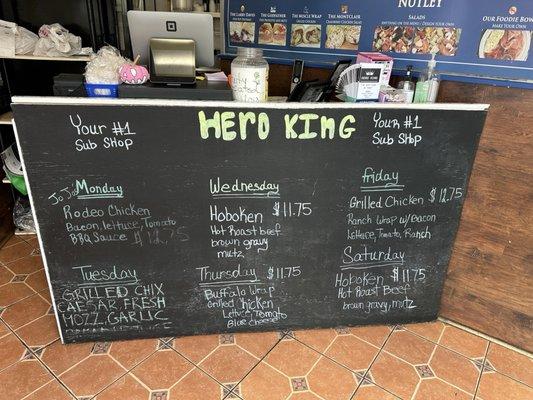 NUTLEY
THE GODFATHER
THE MUSCLE WRAP
THE MONTCLAIR
SALADS
MAKE YOUR OWN
OUR FOODIE BOWL
Your #1
Sub Shop
HERO KING
Your #1
Sub Shop
Jo Jo's
Monday
Rodeo Chicken
Bacon, lettuce, Tomato
BBQ Sauce $12.75
Tuesday
GRILLED CHIX
CAESAR, FRESH
MOZZ, GARLIC
Wednesday
Hoboken $11.75
Hot Roast beef
brown gravy
mutz
Thursday $11.75
Buffalo Wrap
Grilled Chicken
Lettuce, Tomato
Blue Cheese
Friday
Grilled Chicken $12.75
Ranch Wrap w/Bacon
lettuce, Tomato, Ranch
Saturday
Hoboken $11.75
Hot Roast Beef
brown gravy, mutz